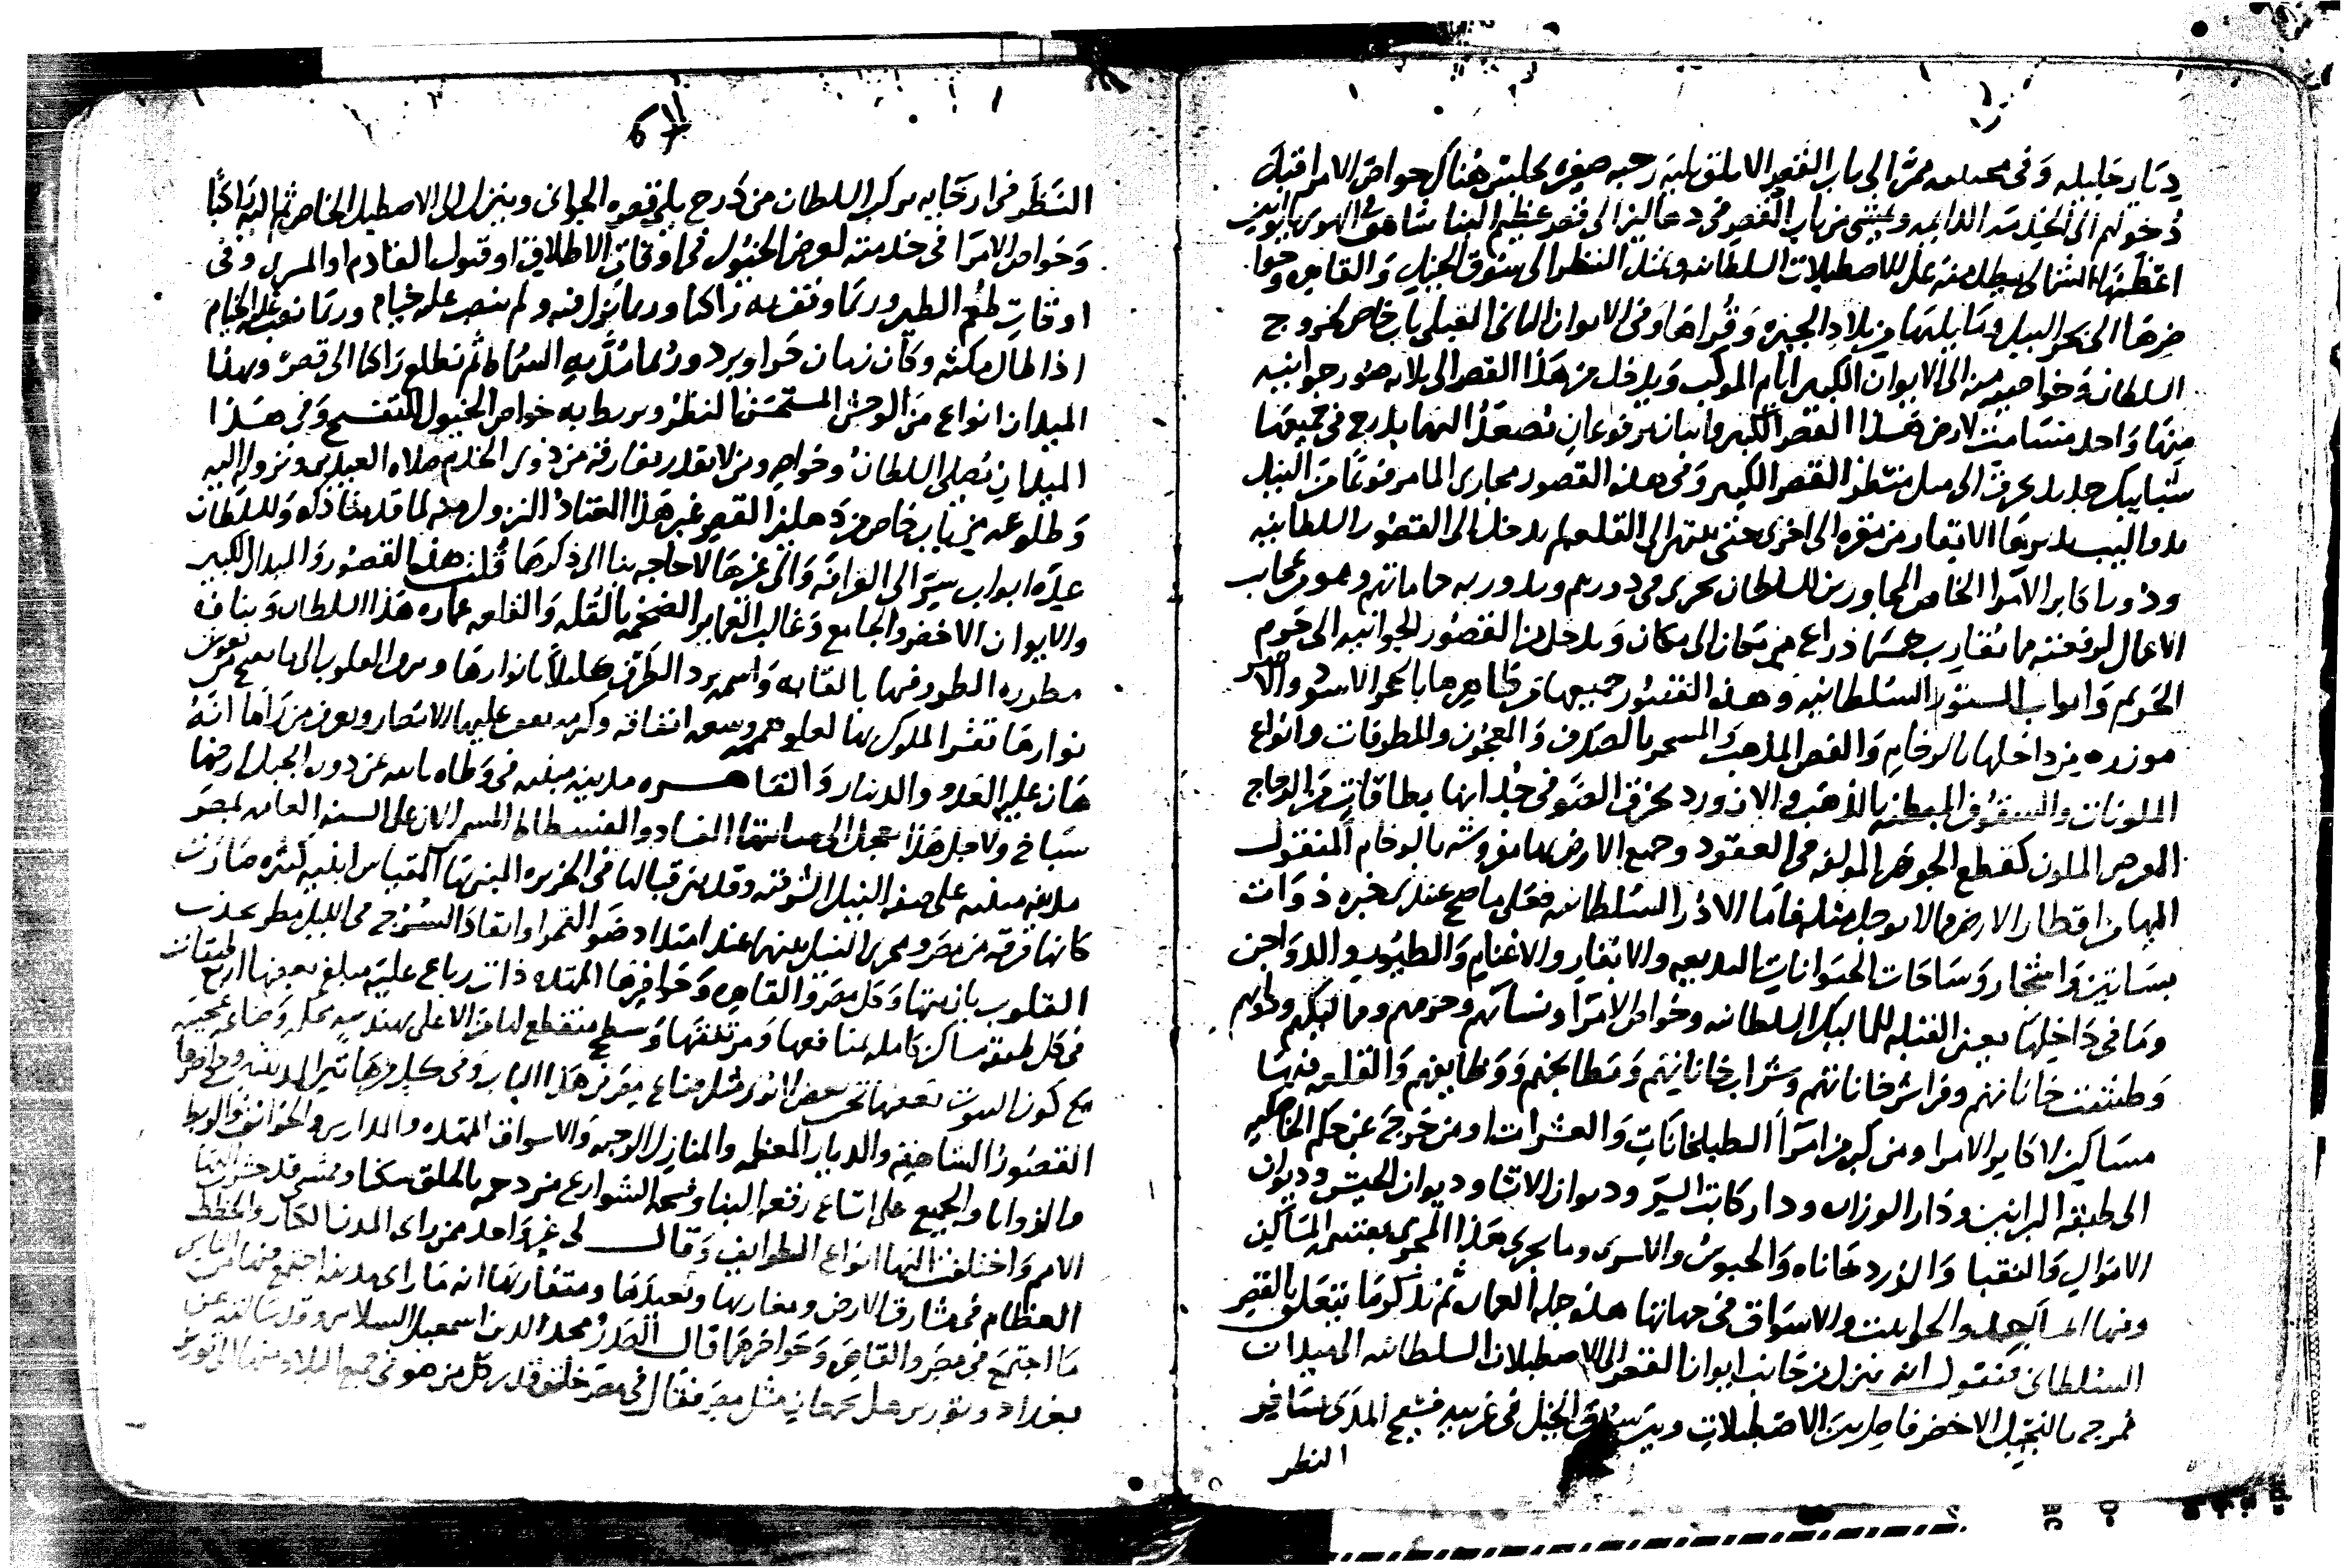 ديار جليله وفى مجنبته ممرا الى باب القصر الابلق بليه رحبه صغيره يجلس هناك خواص الامرا قبل
دخولهم الى الخدمه الدايمه ويمشى من باب القصر فى دهاليز الى قصر عظيم البنا شاهق فى الهوى بايوانين
اعظمهما الشمالى يطل منه على الاصطبلات السلطانيه ويمتد النظر الى سوق الخيل والقاهره وحوا
ضرها الى بحر النيل وما يليها من بلاد الجيزه وقراها وفى الايوان الثانى القبلى باب خاص لخروج
السلطان وخواصه منه الى الايوان الكبير ايام الموكب ويدخل من هذا القصر الى ثلاثه قصور جوانيه
منها واحد مسامت لارض هذا القصر الكبير واثنان مرفوعان تصعد اليهما بدرج فى جميعها
شبابيك حديد تخرق الى مثل منظر القصر الكبير وفى هذه القصور مجارى الما مرفوعا من النيل
بدواليب تديرها الابقار من مقره الى اخرى حتى ينتهى الى القلعه ثم يدخل الى القصور السلطانيه
ودور اكابر الامرا الخاص المجاورين للسلطان يجرى فى دورهم ويدور به حماماتهم وهو من عجايب
الاعمال لرفعته ما تقارب خمسمايه ذراع من مكان الى مكان ويدخل من القصور الجوانيه الى حرم
الحريم وابواب الستور السلطانيه وهذه القصور جميعها من ظاهرها بالحجر الاسود والاصفر
موزره من داخلها بالرخام والفص المذهب والمشجر بالصدف والمعجون والمطرقات وانواع
الملونات والسقوف المبطنه بالذهب واللازورد تخرق الضو فى جدرانها بطاقات من الزجاج
القبرصى الملون كقطع الجوهر المولفه فى العقود وجميع الارض بها مفروشه بالرخام المنقول
اليها من اقطار الارض مما لا يوجد مثله فاما الادر السلطانيه فعلى ما صح عندى خبره ذوات
بساتين واشجار وساحات الحيوانات البديعه والابقار والاغنام والطيور والدواجن
وما فى داخلها بعض القبله للمماليك السلطانيه وخواص الامرا ونسائهم وحرمهم ومماليكهم ودوابهم
وطشت خاناتهم وفراش خاناتهم وشراب خاناتهم ومطابخهم ووظايفهم والقلعه فيها
مساكن لاكابر الامرا ومن كبر من امرا الطبلخانات والعشرات او من خرج عن حكم الخاصكيه
الى طبقه البرانيين ودار الوزاره ودار كاتب السر وديوان الانشا وديوان الجيش وديوان
الاموال والنقبا والزردخاناه والحبوس والاسرى وما يجرى هذا المجرى بقيته المساكن
وفيها المساجد والحوانيت والاسواق فى جهاتها هذه جمله العماره ثم نذكر ما يتعلق بالقصر
السلطانى فنقول انه ينزل من جانب ايوان القصر الى الاصطبلات السلطانيه الى ميدان
ممرج بالنجيل الاخضر فاصل بين الاصطبلات وبين سوق الخيل فى غربيه فسيح المدى يسافر
النظر
النظر فى ارجايه يركب السلطان من درج يلى قصره الجوانى وينزل الى الاصطبل الخاص ثم اليه راكبا
وخواص الامرا فى خدمته لعرض الخيول فى اوقات الاطلاق او قبول القادم او المشترى وفى
اوقات طعم الطير وربما وقف به راكبا وربما نزل فيه ولم ينصب عليه خيام وربما نصب عليه الخيام
اذا طال مكثه وكان زمان حر او برد وربما مد به السماط ثم يطلع راكبا الى قصره وبهذا
الميدان انواع من الوحش المستحسن المنظر ويربط به خواص الخيول للتفسح وفى هذا
الميدان يصلى السلطان وخواصه ومن لا يقدر يفارقه من ذوى الخدم صلاه العيدين ونزوله اليه
وطلوعه من باب خاص من دهليز القصر غير هذا المعتاد النزول منه لما قدمنا ذكره وللسلطان
عده ابواب سر الى القرافه والى غيرها لا حاجه بنا الى ذكرها قلت هذه القصور والميدان الكبير
والايوان الاخضر والجامع وغالب العماير الضخمه بالقلعه والقلعه عماره هذا السلطان وبناه
نوارها تقسر الملوك بها لعلو هممه وسعه انفاقه وكرمه
هان عليه الفدو والدينار والقاهره مدينه مبنيه فى وطاه يابسه عن دور الجبل ارضها
سباخ ولاجل هذا يعجل الى مبانيها الفساد والفسطاط المسمى الان على السنه العامه بمصر
مدينه مبنيه على ضفه النيل الشرقيه وقد بنى قبالها فى الجزيره المبنى بها المقياس ابنيه كثيره صارت
كانها فرقه من مصر ومجرى النيل بينهما عند امتداد ضو القمر او ايقاد السرج فى الليل مطر يجذب
القلوب بازينتها وكل مصر والقاهره وحواضرها الممتده ذات رباع عليه مبلغ بعضها اربع طبقات
فى كل طبقه مساكن كامله بمنافعها ومرتفقها وسطح منقطع لها من الاعلى بهندسه محكمه وصناعه عجيبه
مع كون البيوت بعضها تحت بعض لم نر مثل صناع مصر فى هذا الباب وفى كل من هاتين المدينتين وحواضرها
القصور الشاهقه والديار العظيمه والمنازل الوجيهه والاسواق الممتده والمدارس والخوانق والربط
والزوايا والجميع على اتساع رقعه البنا وفسحه الشوارع مزدحمه بالخلق سكنا وممشى قد حشر اليها
الامم واختلفت اليها انواع الطوايف وقال لى غير واحد ممن راى المدن الكبار والخطط
العظام فى مشارق الارض ومغاربها وبعيدها ومتقاربها انه ما راى مدينه اجتمع فيها من الناس
ما اجتمع فى مصر والقاهره وحواضرهما قال الصدر مجد الدين اسمعيل السلامى وقد سالته عن
بغداد وتوريز هل يجمعان مثل مصر فقال فى مصر خلق قدر كل من هو فى جميع البلاد منها الى توريز